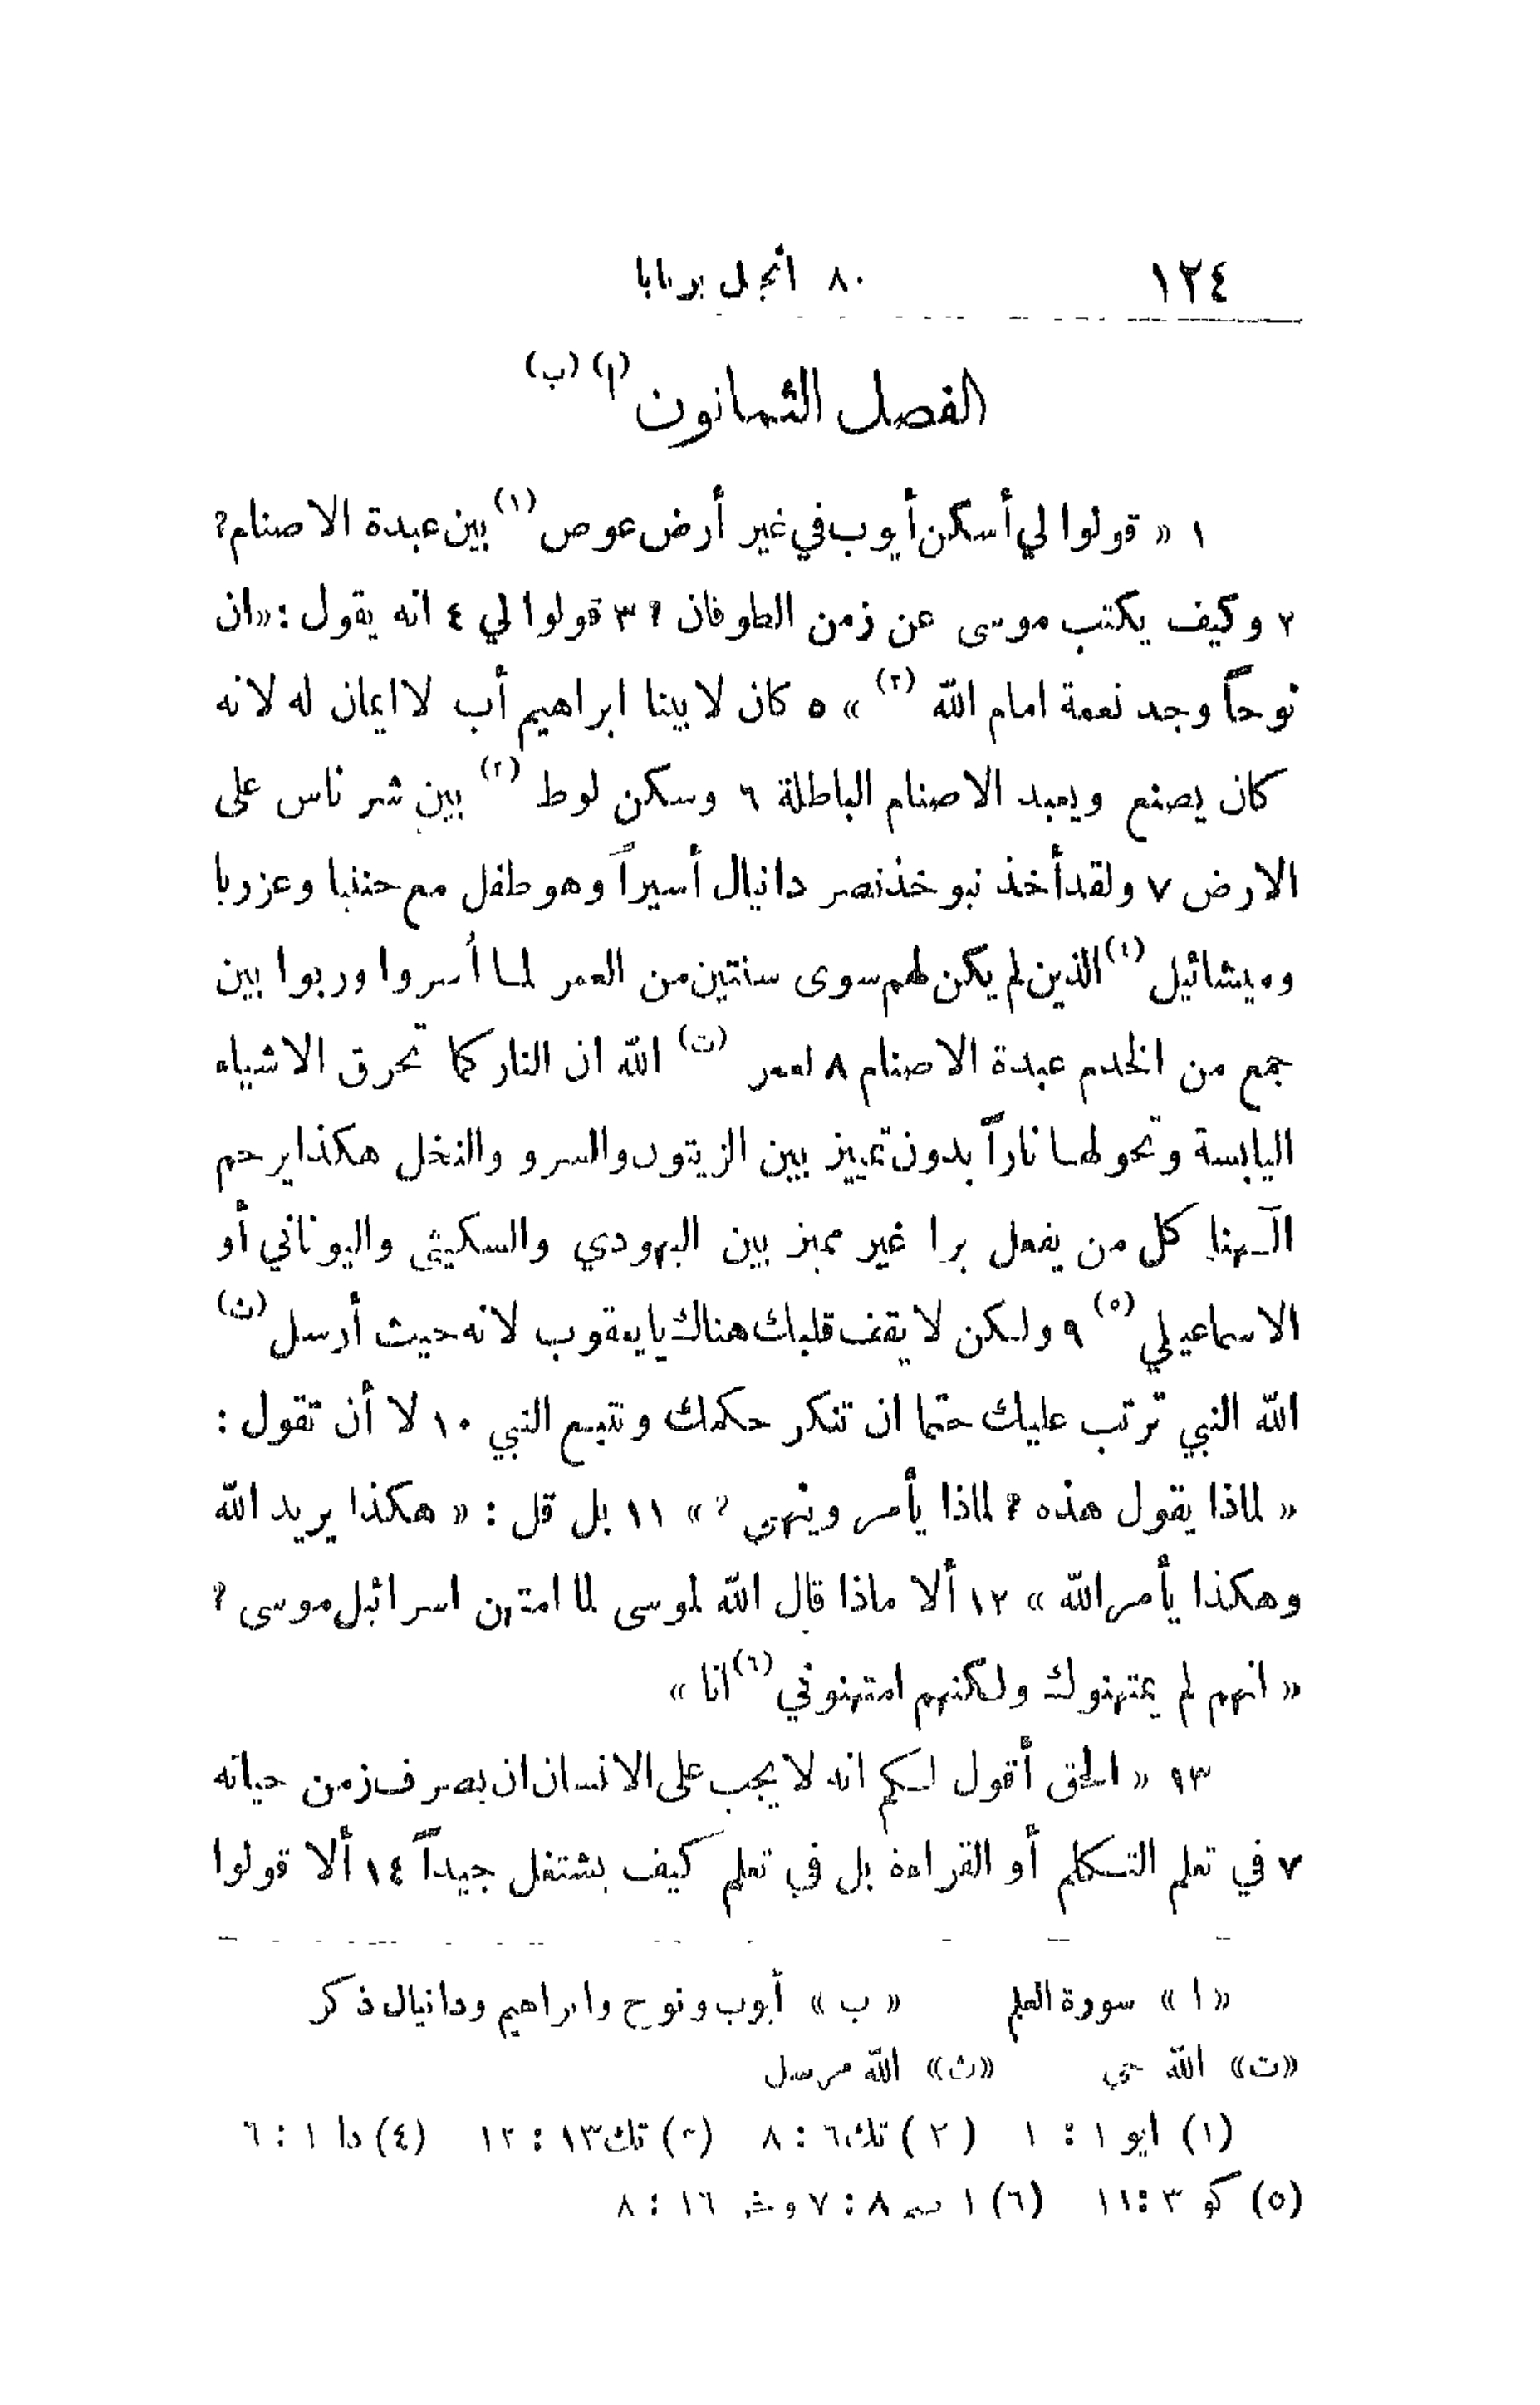 ١٢٤ ٨٠ أنجيل برنابا
الفصل الثمانون (ا) (ب)
١ « قولوا لي أسكن أيوب في غير أرض عوص (١) بين عبدة الاصنام؟
٢ وكيف يكتب موسى عن زمن الطوفان ؟ ٣ قولوا لي ٤ انه يقول : «ان
نوحاً وجد نعمة امام الله (٢) » ٥ كان لابينا ابراهيم أب لا ايمان له لانه
كان يصنع ويعبد الاصنام الباطلة ٦ وسكن لوط (٣) بين شر ناس على
الارض ٧ ولقد أخذ نبوخذنصر دانيال أسيراً وهو طفل مع حننيا وعزريا
وميشائيل (٤) الذين لم يكن لهم سوى سنتين من العمر لما أسروا وربوا بين
جمع من الخدم عبدة الاصنام ٨ لعمر (ت) الله ان النار كما تحرق الاشياء
اليابسة وتحولها ناراً بدون تمييز بين الزيتون والسرو والنخل هكذا يرحم
الهنا كل من يفعل برا غير مميز بين اليهودي والسكيثي واليوناني أو
الاسماعيلي (٥) ٩ ولكن لا يقف قلبك هناك يا يعقوب لانه حيث أرسل (ث)
الله النبي ترتب عليك حتما ان تنكر حكمك وتتبع النبي ١٠ لا أن تقول :
« لماذا يقول هذه ؟ لماذا يأمر وينهى ؟ » ١١ بل قل : « هكذا يريد الله
وهكذا يأمر الله » ١٢ ألا ماذا قال الله لموسى لما امتهن اسرائيل موسى ؟
« انهم لم يمتهنوك ولكنهم امتهنوني (٦) انا »
١٣ « الحق أقول لكم انه لا يجب على الانسان ان يصرف زمن حياته
٧ في تعلم التكلم أو القراءة بل في تعلم كيف يشتغل جيداً ١٤ ألا قولوا
« ا » سورة العلم « ب » أيوب ونوح وابراهيم ودانيال ذكر
«ت» الله حي «ث» الله مرسل
(١) ايو ١ : ١ (٢) تك ٦ : ٨ (٣) تك ١٣ : ١٢ (٤) دا ١ : ٦
(٥) كو ٣ : ١١ (٦) ١ صم ٨ : ٧ وخر ١٦ : ٨